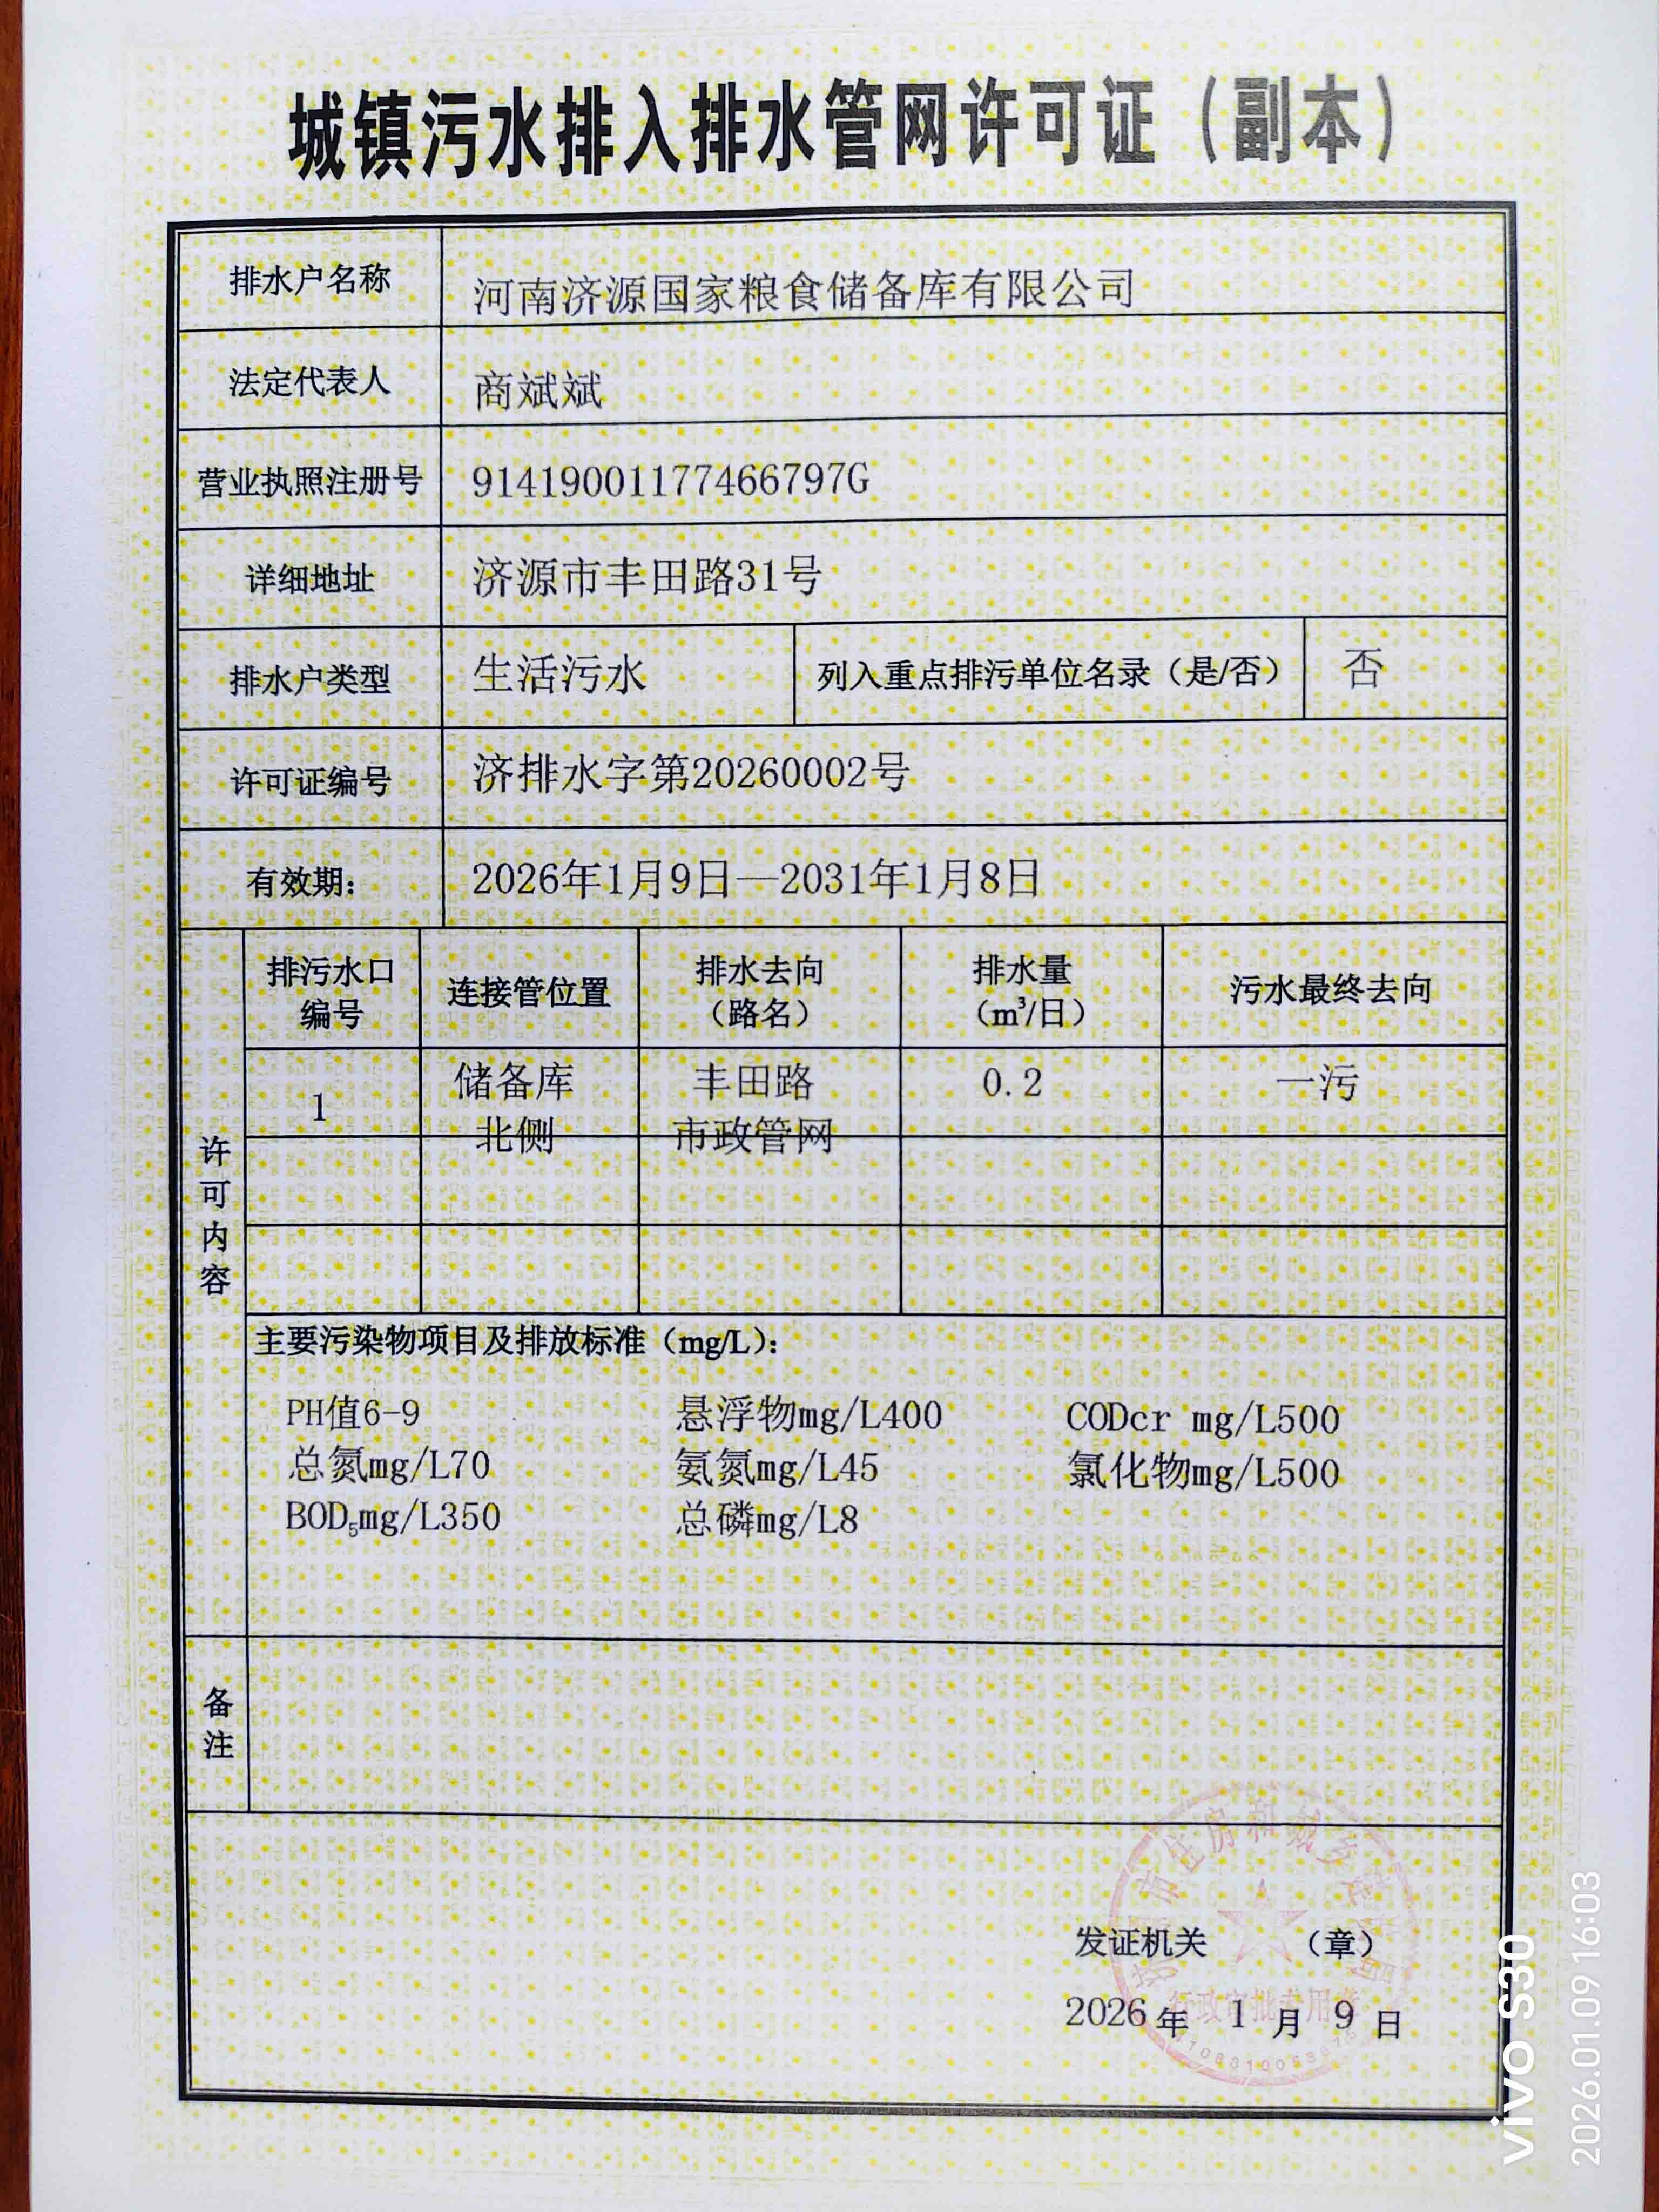 城镇污水排入排水管网许可证（副本）
排水户名称 河南济源国家粮食储备库有限公司
法定代表人 商斌斌
营业执照注册号 91419001177466797G
详细地址 济源市丰田路31号
排水户类型 生活污水 列入重点排污单位名录（是/否） 否
许可证编号 济排水字第20260002号
有效期： 2026年1月9日—2031年1月8日
许可内容
排污水口编号 连接管位置 排水去向（路名） 排水量（m³/日） 污水最终去向
1 储备库北侧 丰田路市政管网 0.2 一污
主要污染物项目及排放标准（mg/L）：
PH值6-9 悬浮物mg/L400 CODcr mg/L500
总氮mg/L70 氨氮mg/L45 氯化物mg/L500
BOD₅mg/L350 总磷mg/L8
备注
市住房和城乡建设局
发证机关 （章）
行政审批专用章
2026年 1 月 9 日
vivo S30
2026.01.09 16:03